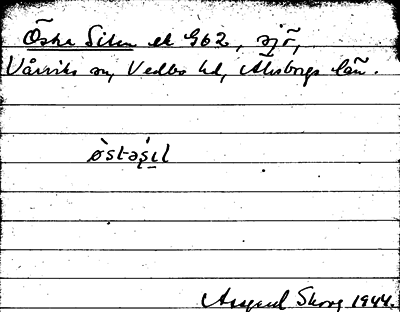 Östra Silen ek 962, sjö,
Vårviks sn, Vedbo hd, Älvsborgs län.
ø̀stəṣíl
Assar Skog 1944.